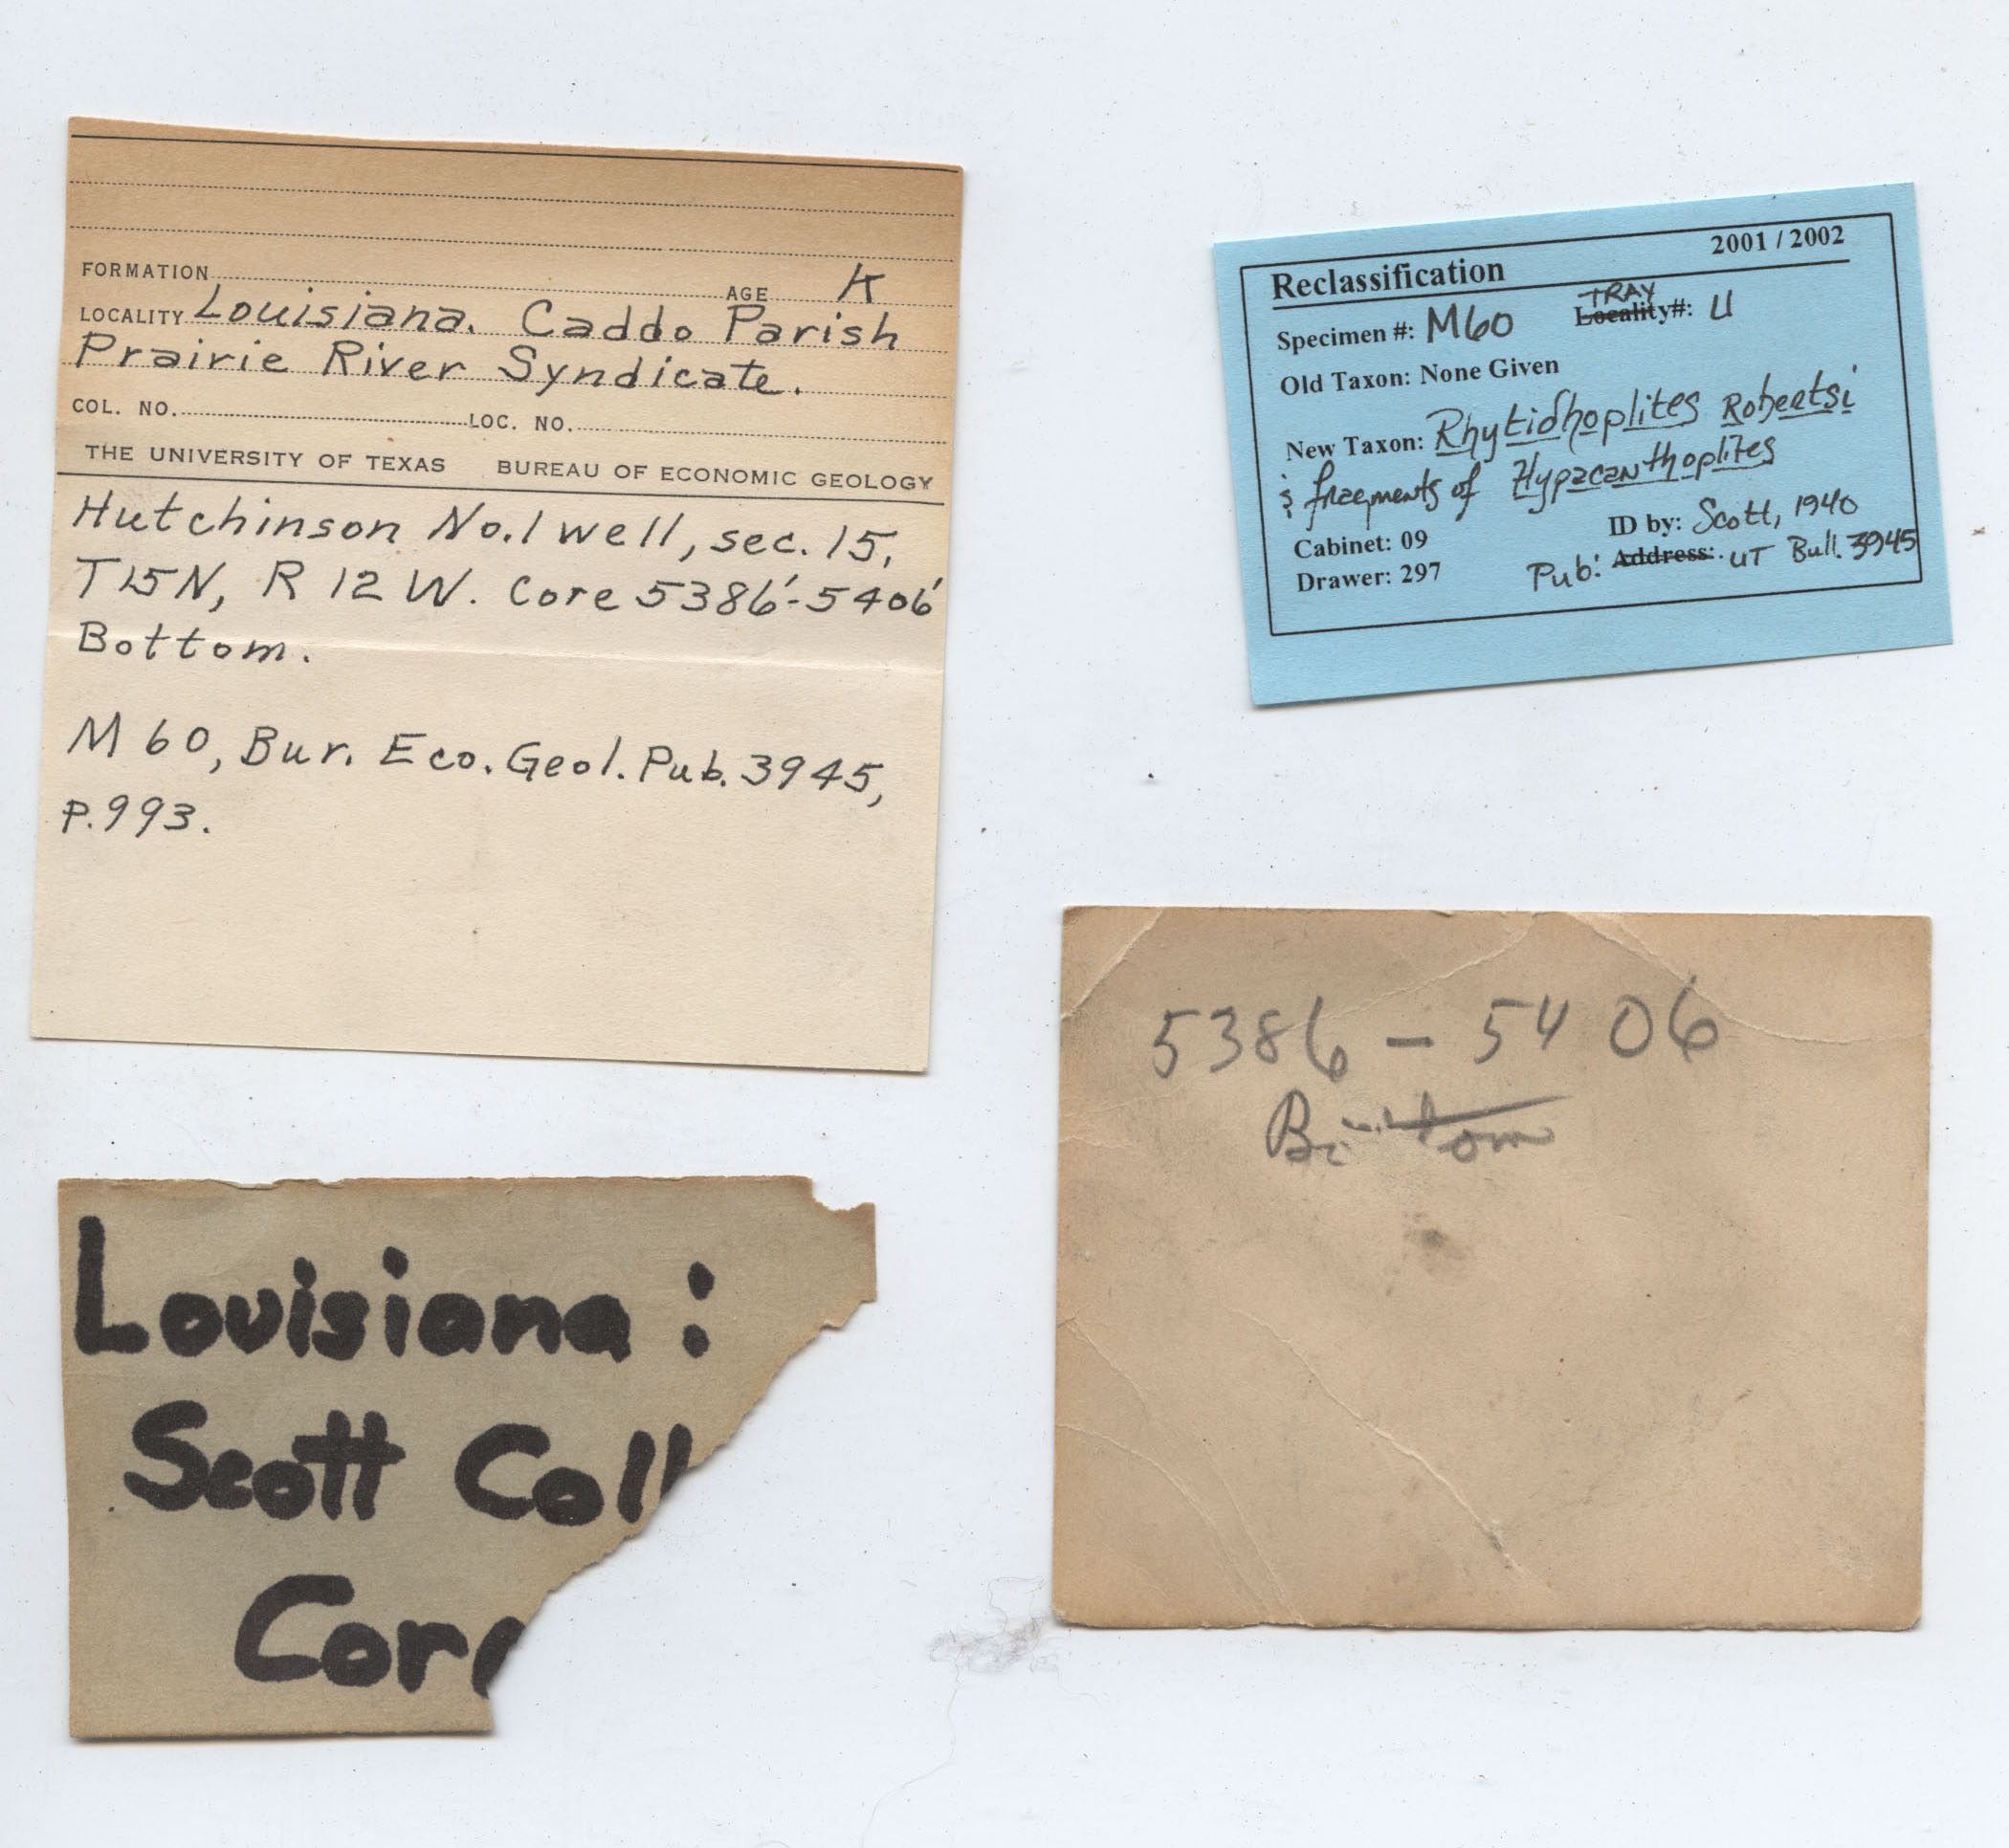 FORMATION AGE K
LOCALITY Louisiana. Caddo Parish
Prairie River Syndicate.
COL. NO. LOC. NO.
THE UNIVERSITY OF TEXAS BUREAU OF ECONOMIC GEOLOGY
Hutchinson No.1 well, sec. 15,
T15N, R 12 W. Core 5386'-5406'
Bottom.
M 60, Bur. Eco. Geol. Pub. 3945,
P.993.
2001 / 2002
Reclassification
TRAY
Specimen #: M60 Locality#: U
Old Taxon: None Given
New Taxon: Rhytidhoplites Robertsi
& fragments of Hypacanthoplites
ID by: Scott, 1940
Cabinet: 09
Pub: Address: UT Bull. 3945
Drawer: 297
5386 - 5406
Bottom
Louisiana :
Scott Coll
Core